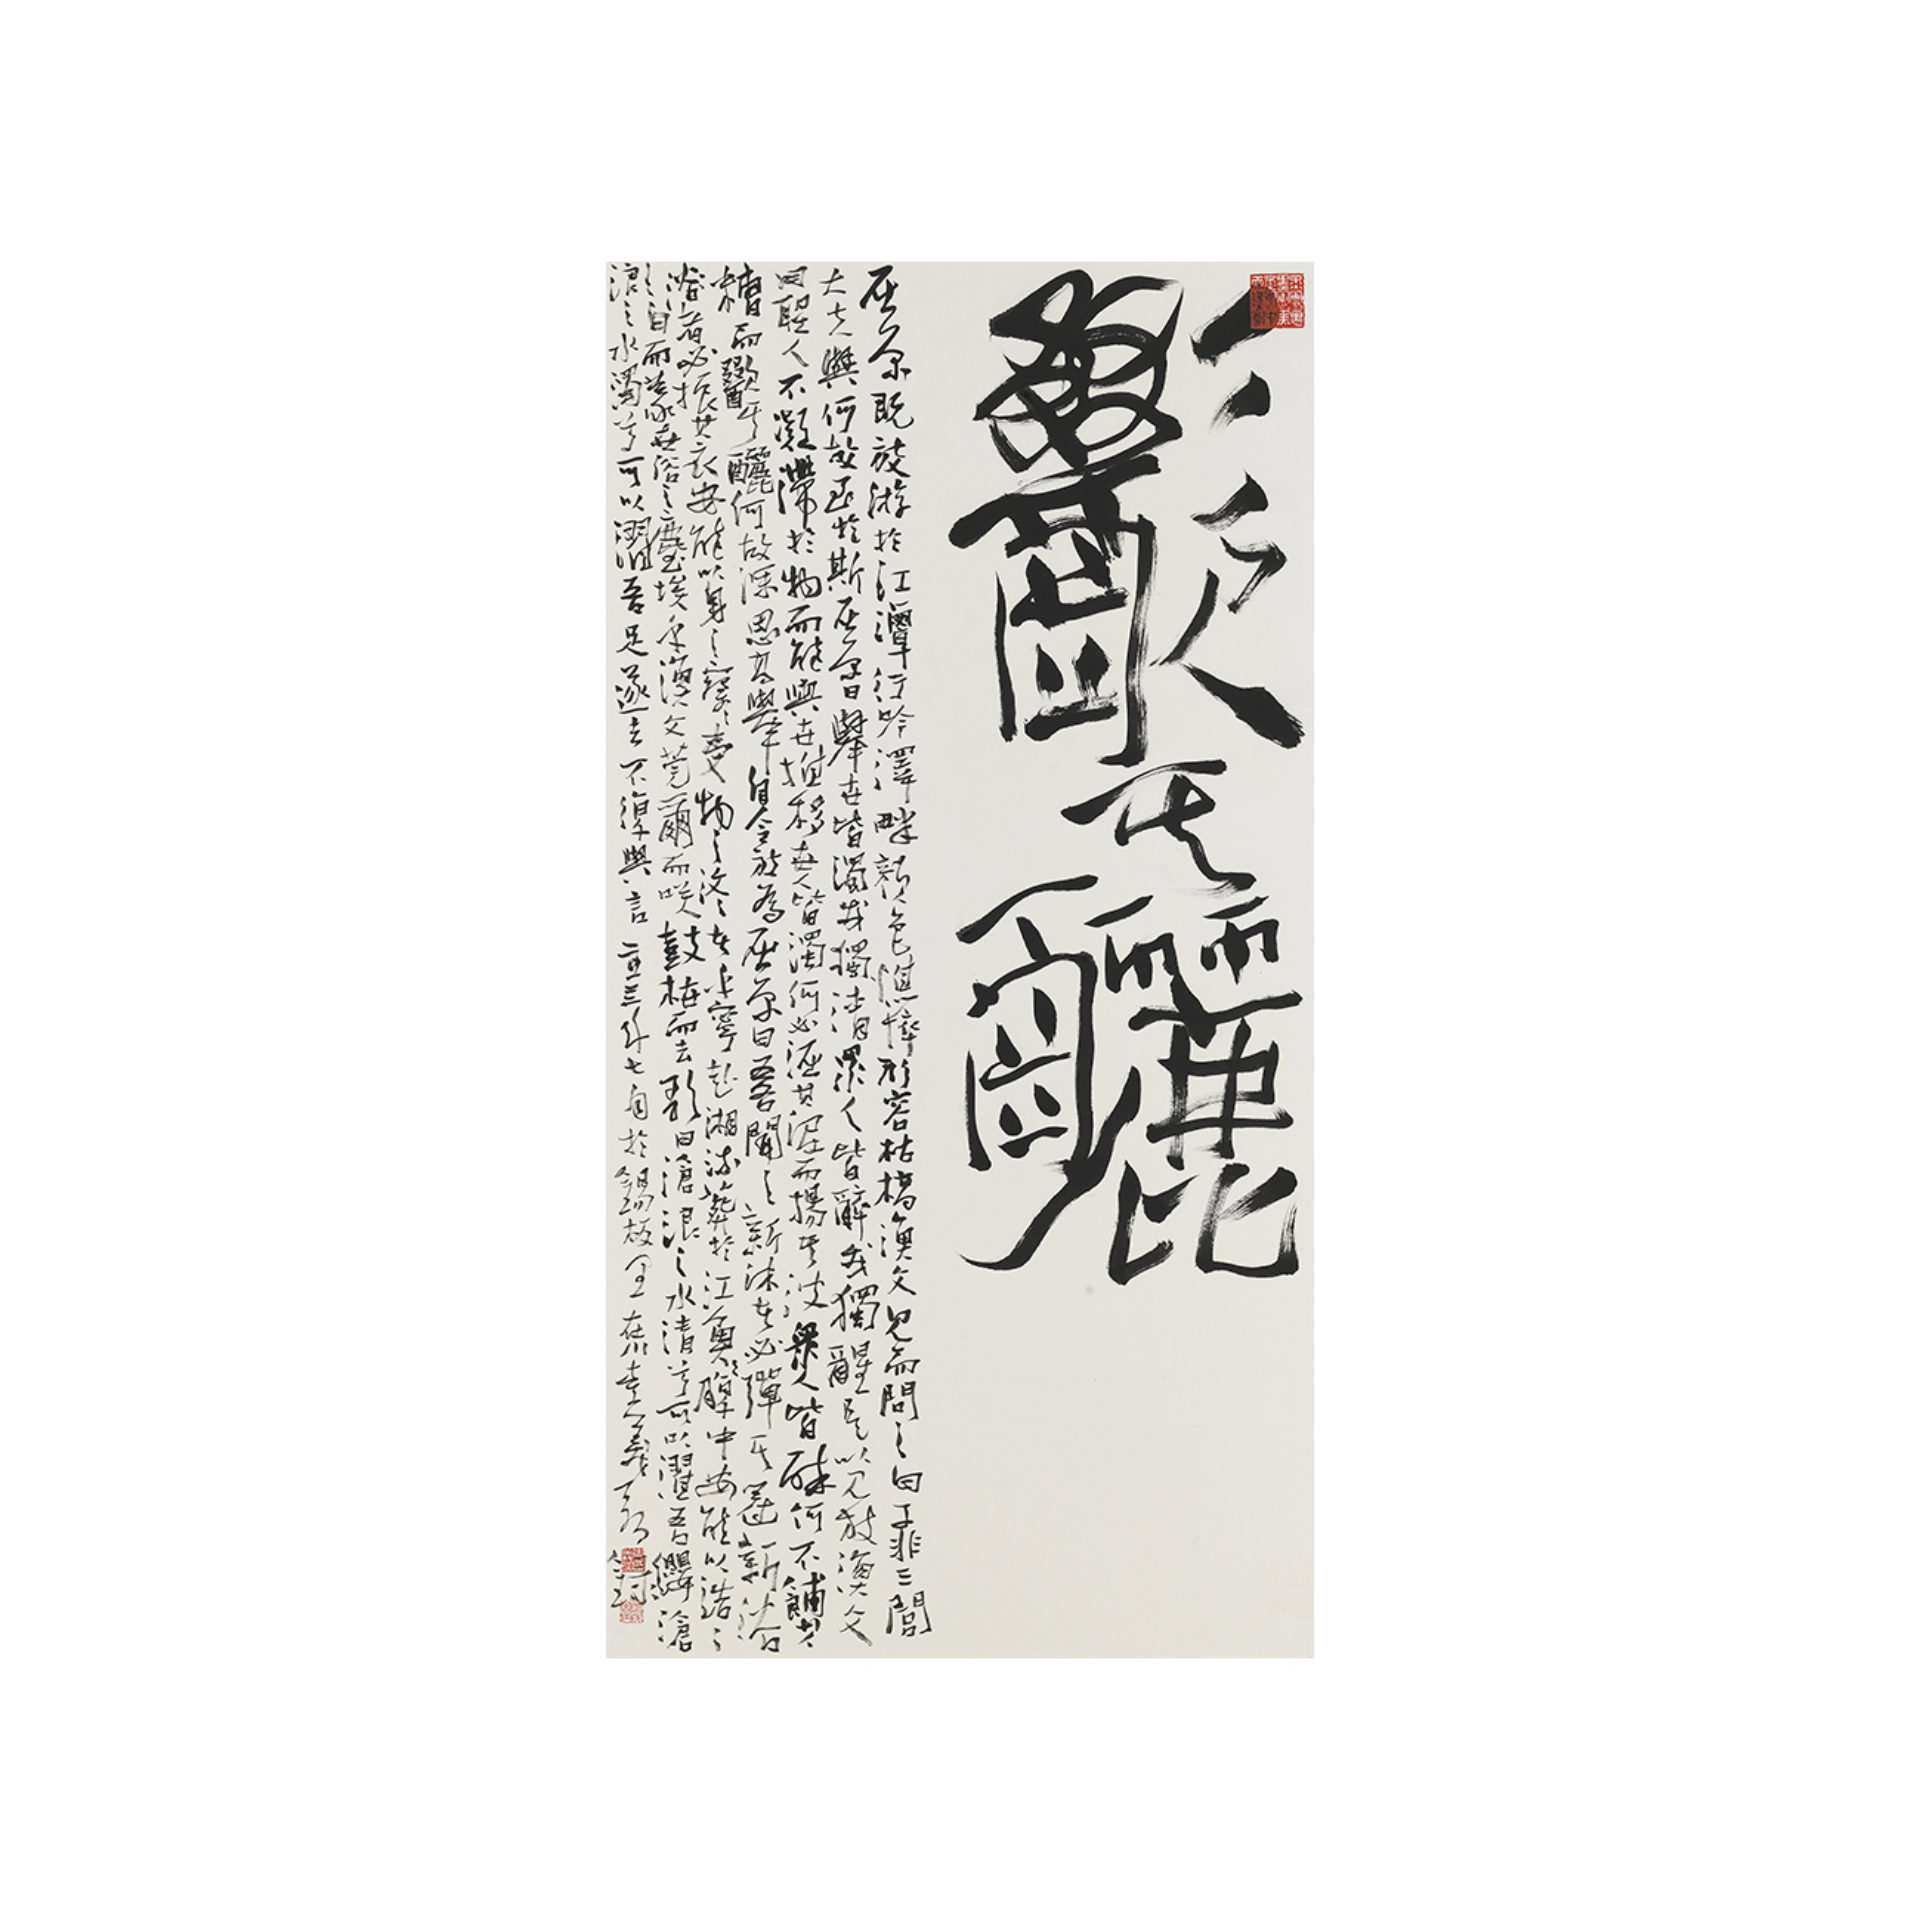 歠其釃
屈原既放游於江潭行吟澤畔顏色憔悴形容枯槁漁父見而問之曰子非三閭
大夫與何故至於斯屈原曰舉世皆濁我獨清眾人皆醉我獨醒是以見放漁父
曰聖人不凝滯於物而能與世推移世人皆濁何必淈其泥而揚其波眾人皆醉何不餔其
糟而歠其釃何故深思高舉自令放為屈原曰吾聞之新沐者必彈其冠新浴
浴者必振其衣安能以身之察察受物之汶汶者乎寧赴湘流葬於江魚腹中安能以浩浩
之白而蒙世俗之塵埃乎漁父莞爾而咲鼓枻而去歌曰滄浪之水清兮可以濯吾纓滄
浪之水濁兮可以濯吾足遂去不復與言 三年七月於錫